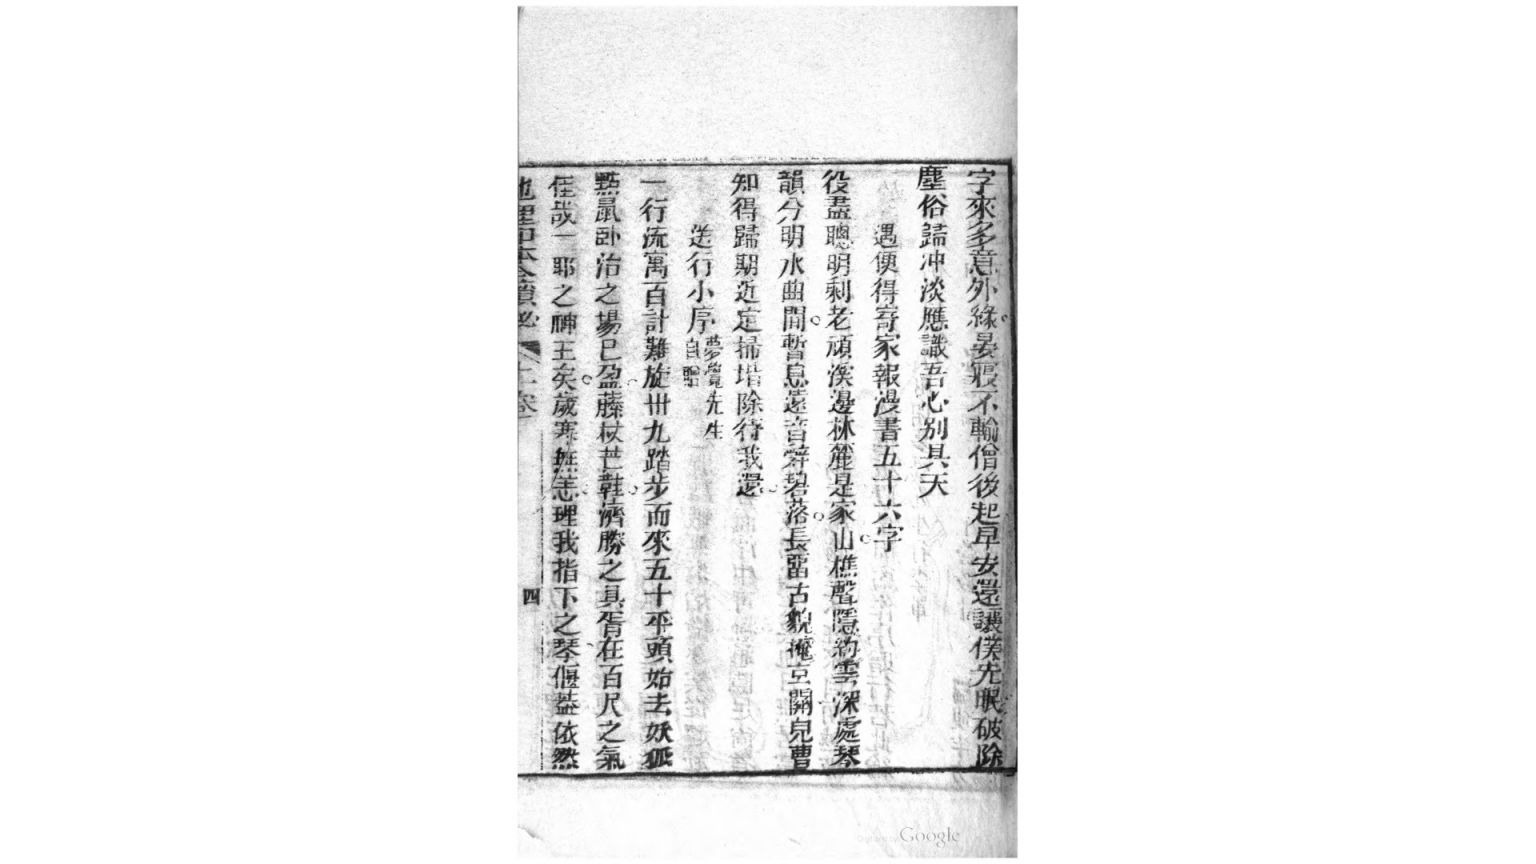 字來多意外緣晏寢不輸僧後起早安還讓僕先眠破除
塵俗歸冲淡應識吾心别具天
遇便得寄家報漫書五十六字
役盡聰明剩老頑溪邊林麓是家山樵聲隱約雲深處琴
韻分明水曲間暫息遠音辭碧落長留古貌掩玄關兒曹
知得歸期近定掃堦除待我還
送行小序
夢覺先生
自贈
一行流寓百計難旋卅九踏步而來五十平頭始去妖狐
黠鼠卧治之場已盈藤杖芒鞋濟勝之具胥在百尺之氣
侄哉一耶之神王矣歲寒無恙理我指下之琴偃葢依然
四
Google